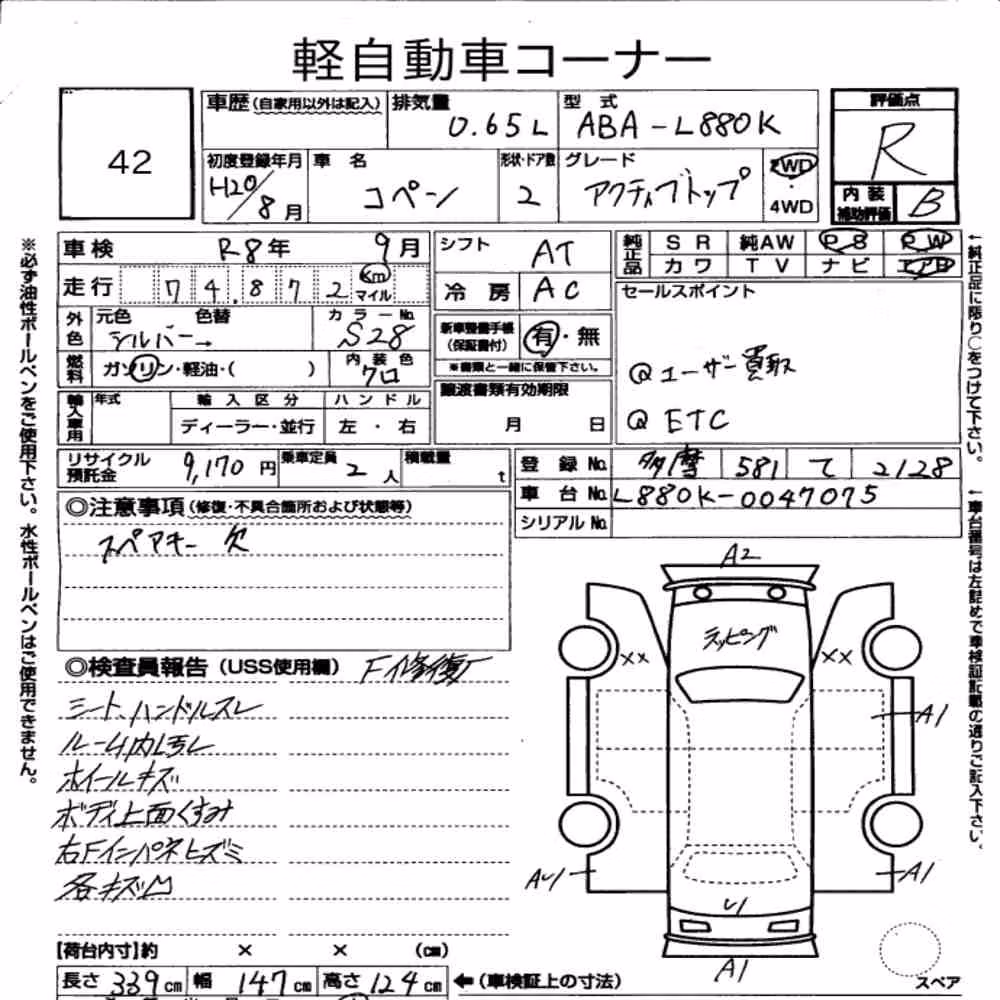 軽自動車コーナー
42
車歴(自家用以外は記入) 排気量 0.65L 型式 ABA-L880K 評価点 R
初度登録年月 H20/8月 車名 コペン 形状・ドア数 2 グレード アクティブトップ 2WD・4WD 内装補助評価 B
車検 R8年 9月 シフト AT 純正品 SR 純AW PS PW
走行 74,872 Km マイル 冷房 AC カワ TV ナビ エアB
外色 元色 シルバー 色替 → カラーNo. S28 新車整備手帳(保証書付) 有・無 セールスポイント
※書類と一緒に保管下さい。
燃料 ガソリン・軽油・( ) 内装色 クロ ◎ユーザー買取
輸入車用 年式 輸入区分 ハンドル 譲渡書類有効期限
ディーラー・並行 左・右 月 日 ◎ETC
リサイクル預託金 9,170円 乗車定員 2人 積載量 t 登録No. 多摩 581 て 2128
車台No. L880K-0047075
シリアルNo.
◎注意事項(修復・不具合箇所および状態等)
スペアキー欠
◎検査員報告(USS使用欄) F修復
シート、ハンドルスレ
ルーム内ヨゴレ
ホイールキズ
ボディ上面くすみ
右FインパネヒズミI
各キズ凹
【荷台内寸】約 × × (cm)
長さ 339cm 幅 147cm 高さ 124cm ←(車検証上の寸法)
A2
ラッピング
XX XX
A1
AU1 A1
U1
A1
スペア
※必ず油性ボールペンをご使用下さい。水性ボールペンはご使用できません。
↑純正品に限り○をつけて下さい。
↑車台番号は左詰めで車検証記載の通りご記入下さい。